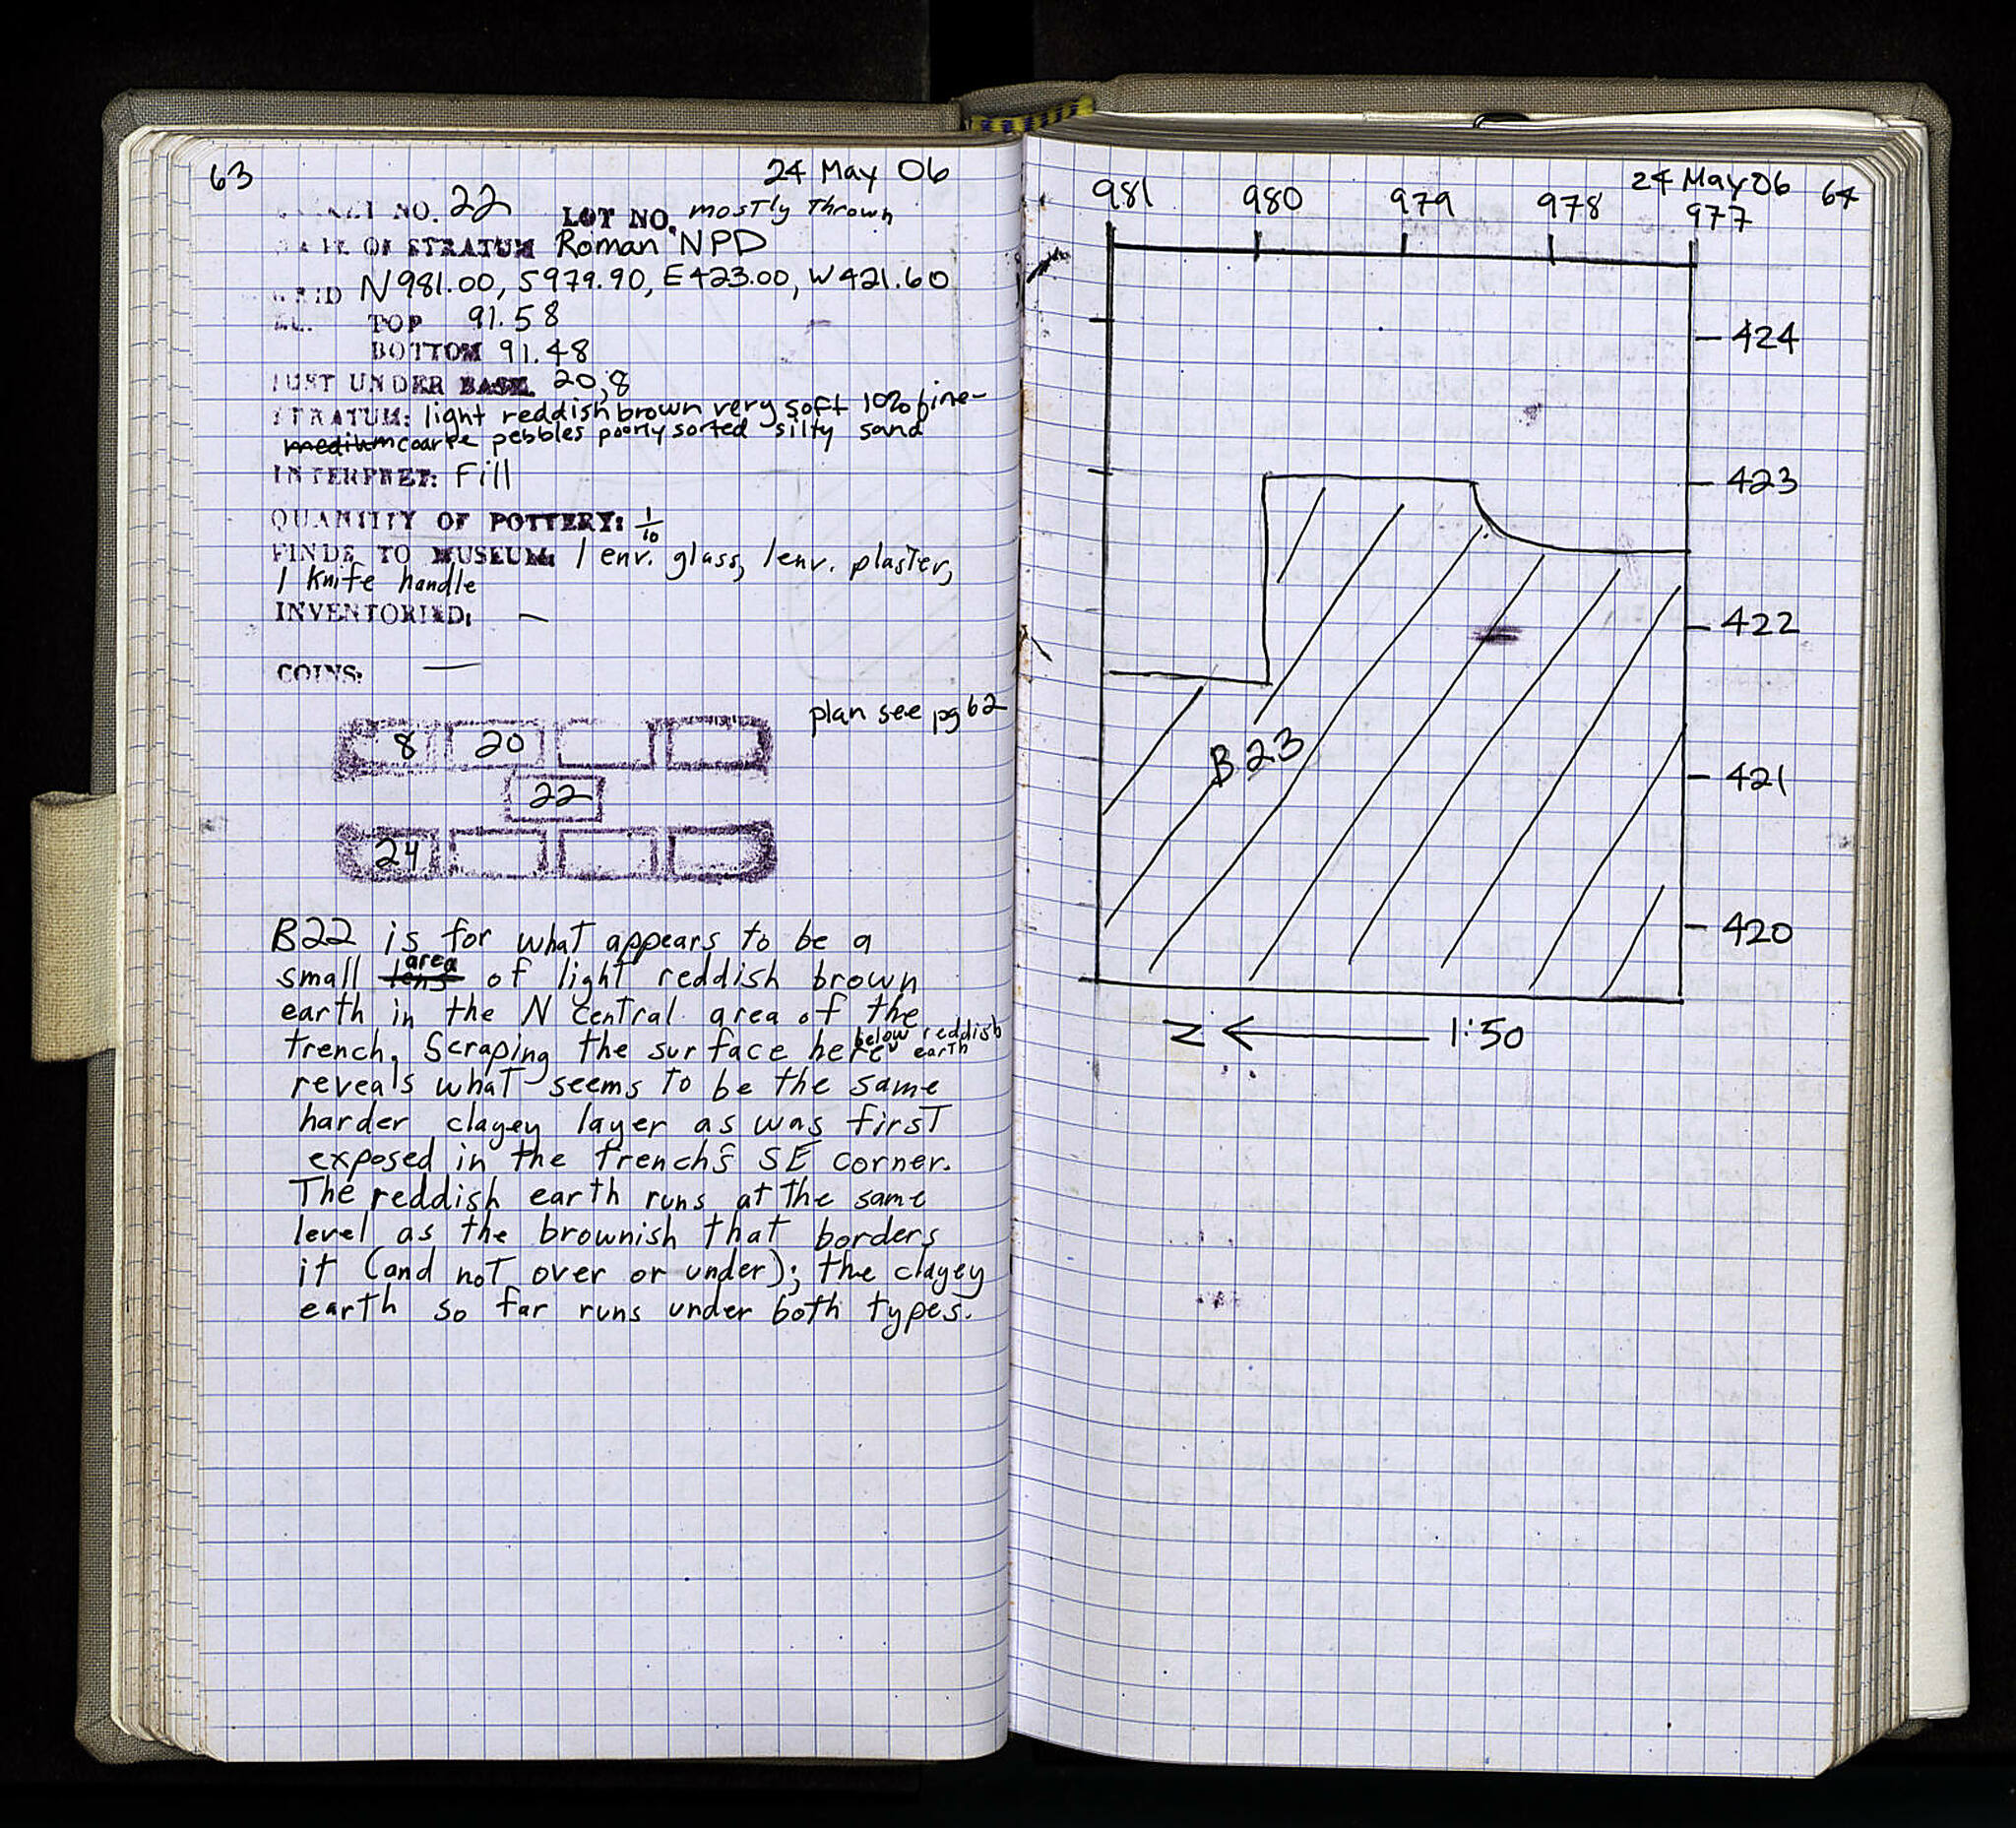 63 24 May 06
NO. 22 LOT NO. mostly thrown
OF STRATUM Roman NPD
GRID N981.00, S979.90, E423.00, W421.60
EL. TOP 91.58
BOTTOM 91.48
JUST UNDER BASK. 20, 8
STRATUM: light reddish brown very soft 10% fine-
medium coarse pebbles poorly sorted silty sand
INTERPRET: Fill
QUANTITY OF POTTERY: 1/10
FINDS TO MUSEUM: 1 env. glass, 1 env. plaster,
1 knife handle
INVENTORIED: —
COINS: —
plan see pg 62
8 20
22
24
B22 is for what appears to be a
small lens area of light reddish brown
earth in the N Central area of the
trench. Scraping the surface here below reddish earth
reveals what seems to be the same
harder clayey layer as was first
exposed in the trench's SE corner.
The reddish earth runs at the same
level as the brownish that borders
it (and not over or under); the clayey
earth so far runs under both types.
24 May 06 64
981 980 979 978 977
424
423
422
B23
421
420
N 1:50